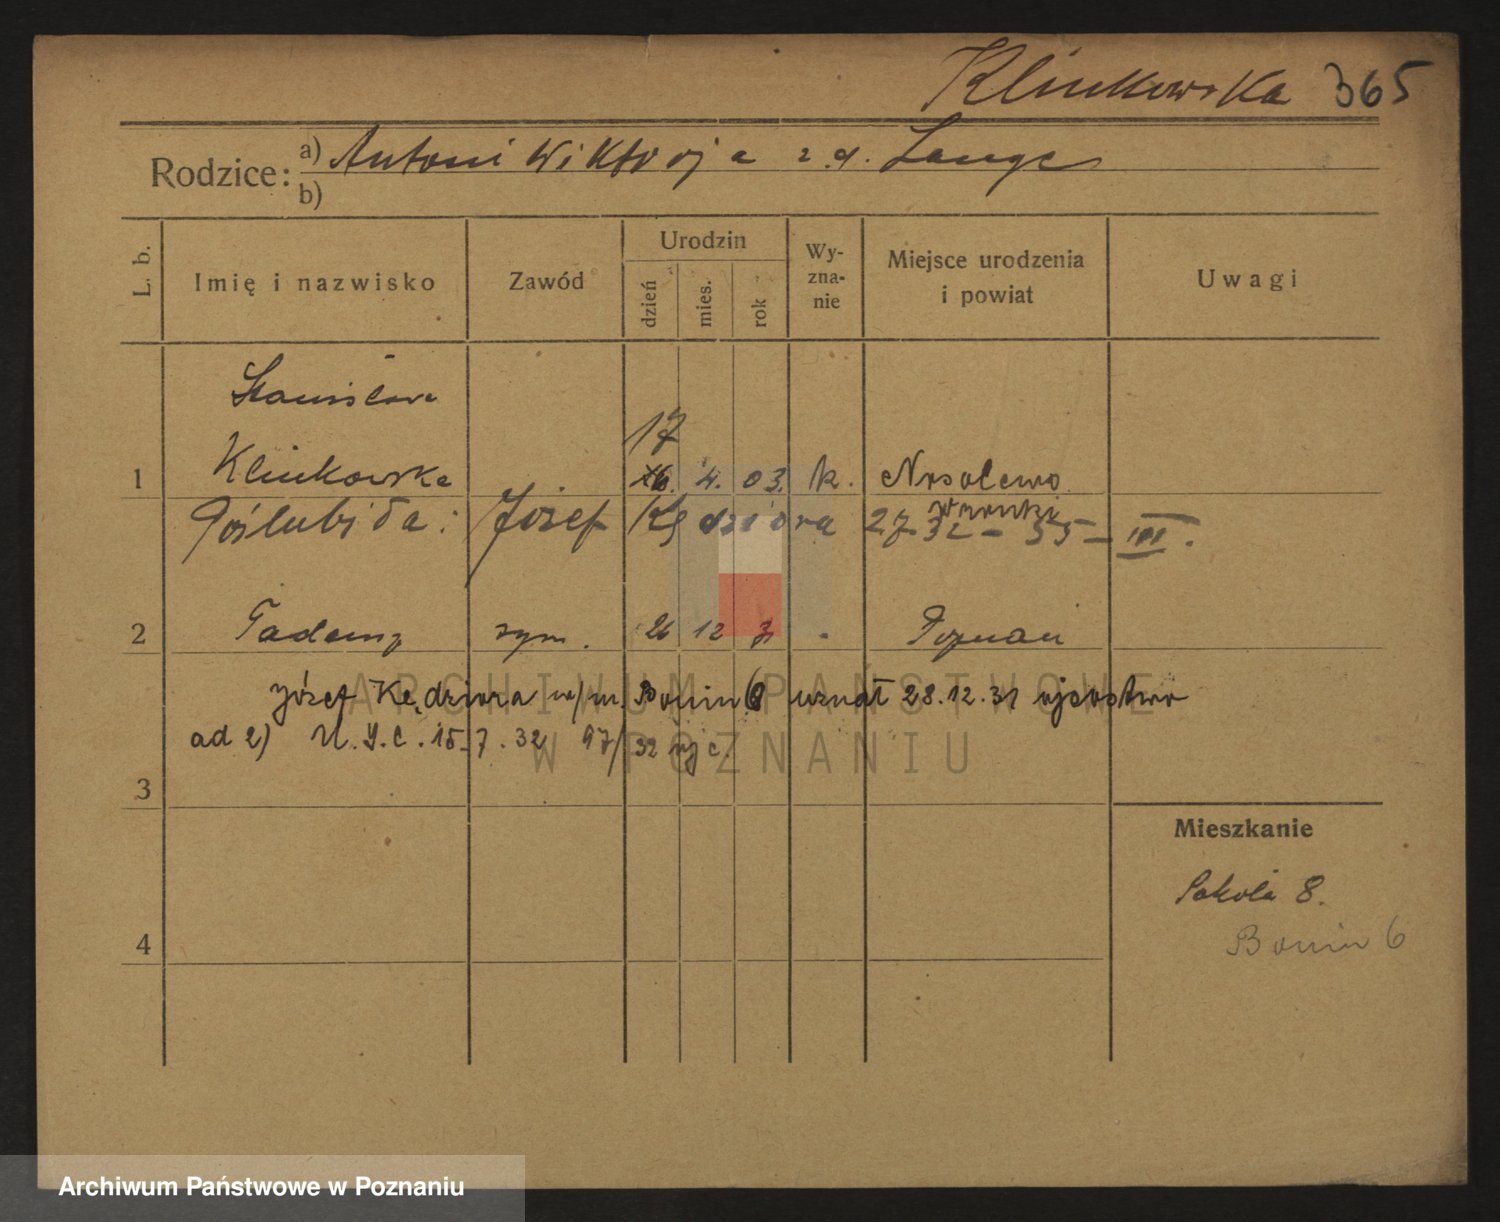 Klinkowska 365
Rodzice: a) Antoni Wiktorja z d. Lange
b)
L. b. Imię i nazwisko Zawód Urodzin dzień mies. rok Wy-zna-nie Miejsce urodzenia i powiat Uwagi
Stanisława
17
1 Klinkowska 16. 4. 03. k. Nosalewo
Wronki
Poślubiła: Józef Kędziora 27.7.32 - 55 - III.
2 Tadeusz syn. 26 12 31 Poznań
Józef Kędziora w/m. Bonin 6 uznał 28.12.31 ojcostwo
ad 2) U.S.C. 15.7.32 97/32
3
Mieszkanie
Sokoła 8.
4 Bonin 6
ARCHIWUM PAŃSTWOWE
W POZNANIU
Archiwum Państwowe w Poznaniu